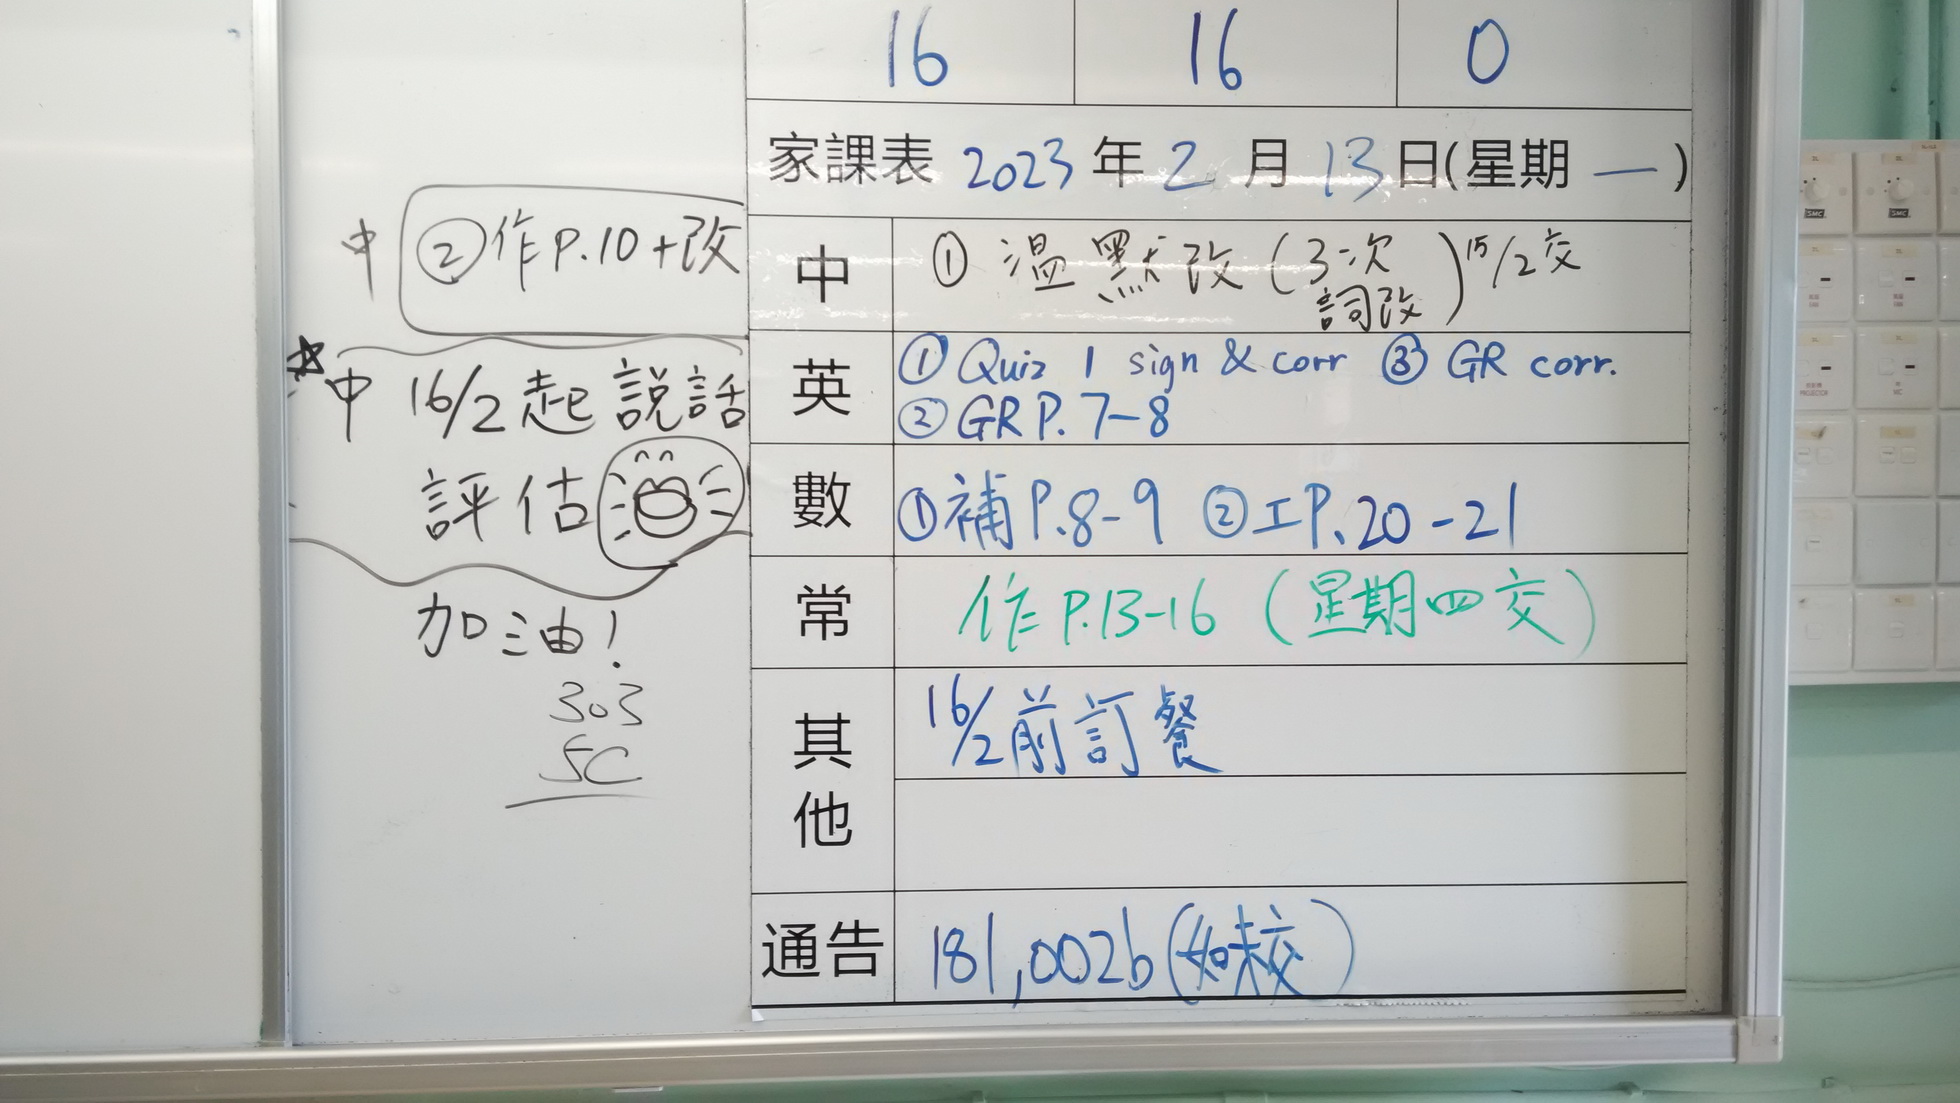 16 16 0
家課表 2023 年 2 月 13 日(星期 一 )
中 ②作P.10+改
中 ① 溫默改(3次詞改)15/2交
中 16/2起說話
評估
加油!
303
5C
英 ① Quiz 1 sign & corr ③ GR corr.
② GR P. 7-8
數 ①補P.8-9 ②工P.20-21
常 作P.13-16 (星期四交)
其他 16/2前訂餐
通告 181,002b(如未交)